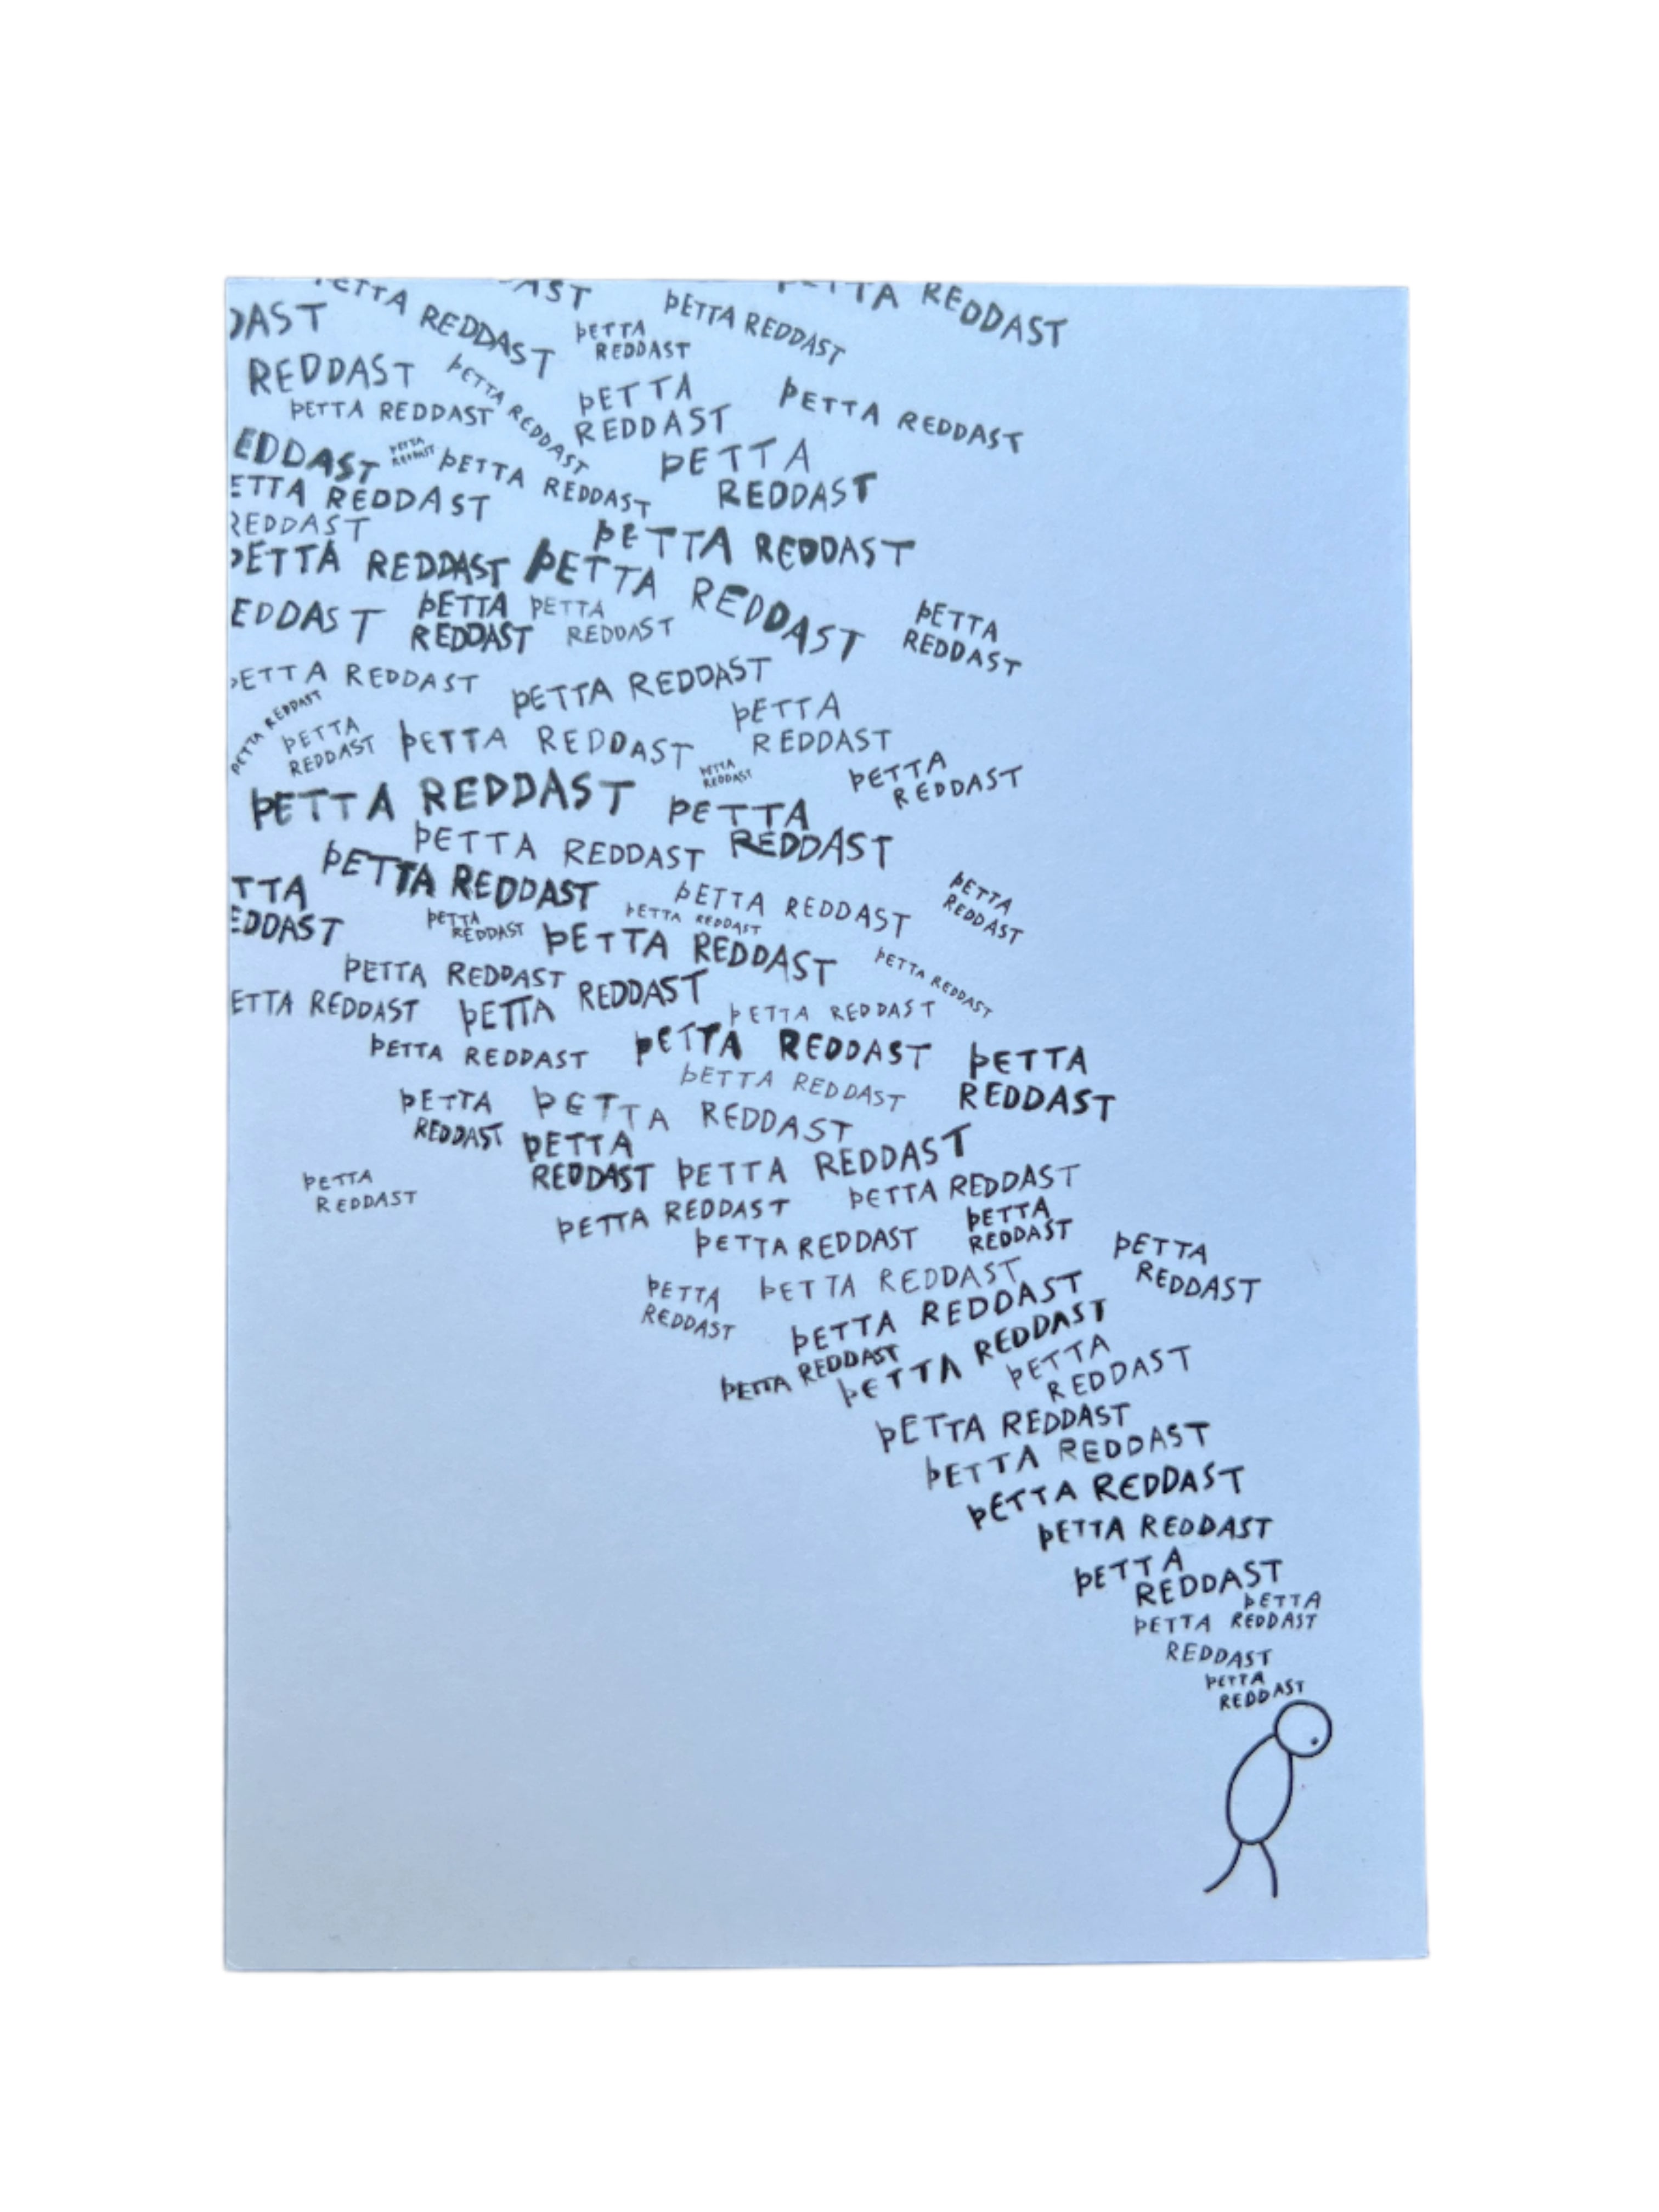 ETTA REDDAST
AST
ÞETTA REDDAST
TTA REDDAST
DAST
ÞETTA
REDDAST
REDDAST
ÞETTA REDDAST
ÞETTA
REDDAST
ÞETTA REDDAST
ÞETTA REDDAST
EDDAST
ÞETTA
REDDAST
ÞETTA REDDAST
ÞETTA
REDDAST
ETTA REDDAST
REDDAST
ÞETTA REDDAST
ÞETTA REDDAST
ÞETTA REDDAST
EDDAST
ÞETTA
REDDAST
ÞETTA
REDDAST
ÞETTA
REDDAST
ÞETTA REDDAST
ÞETTA REDDAST
ÞETTA REDDAST
ÞETTA
REDDAST
ÞETTA REDDAST
ÞETTA
REDDAST
ÞETTA
REDDAST
ÞETTA
REDDAST
ÞETTA REDDAST
ÞETTA
REDDAST
ÞETTA REDDAST
ÞETTA REDDAST
TTA
EDDAST
ÞETTA REDDAST
ÞETTA
REDDAST
ÞETTA
REDDAST
ÞETTA REDDAST
ÞETTA REDDAST
ÞETTA REDDAST
ÞETTA REDDAST
ETTA REDDAST
ÞETTA REDDAST
ÞETTA REDDAST
ÞETTA REDDAST
ÞETTA REDDAST
ÞETTA
REDDAST
ÞETTA REDDAST
ÞETTA
REDDAST
ÞETTA REDDAST
ÞETTA
REDDAST
ÞETTA REDDAST
ÞETTA
REDDAST
ÞETTA REDDAST
ÞETTA REDDAST
ÞETTA REDDAST
ÞETTA
REDDAST
ÞETTA
REDDAST
ÞETTA
REDDAST
ÞETTA REDDAST
ÞETTA REDDAST
ÞETTA REDDAST
ÞETTA REDDAST
ÞETTA
REDDAST
ÞETTA REDDAST
ÞETTA REDDAST
ÞETTA REDDAST
ÞETTA REDDAST
ÞETTA
REDDAST
ÞETTA
ÞETTA REDDAST
REDDAST
ÞETTA
REDDAST